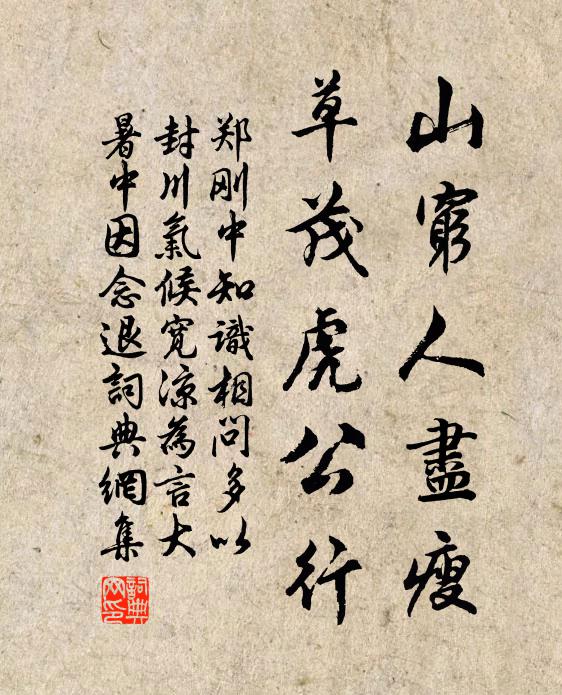 山窮人盡瘦
草茂虎公行
郑刚中知識相問多以
封川氣候寬凉為言大
暑中因念退詞典網集
詞典